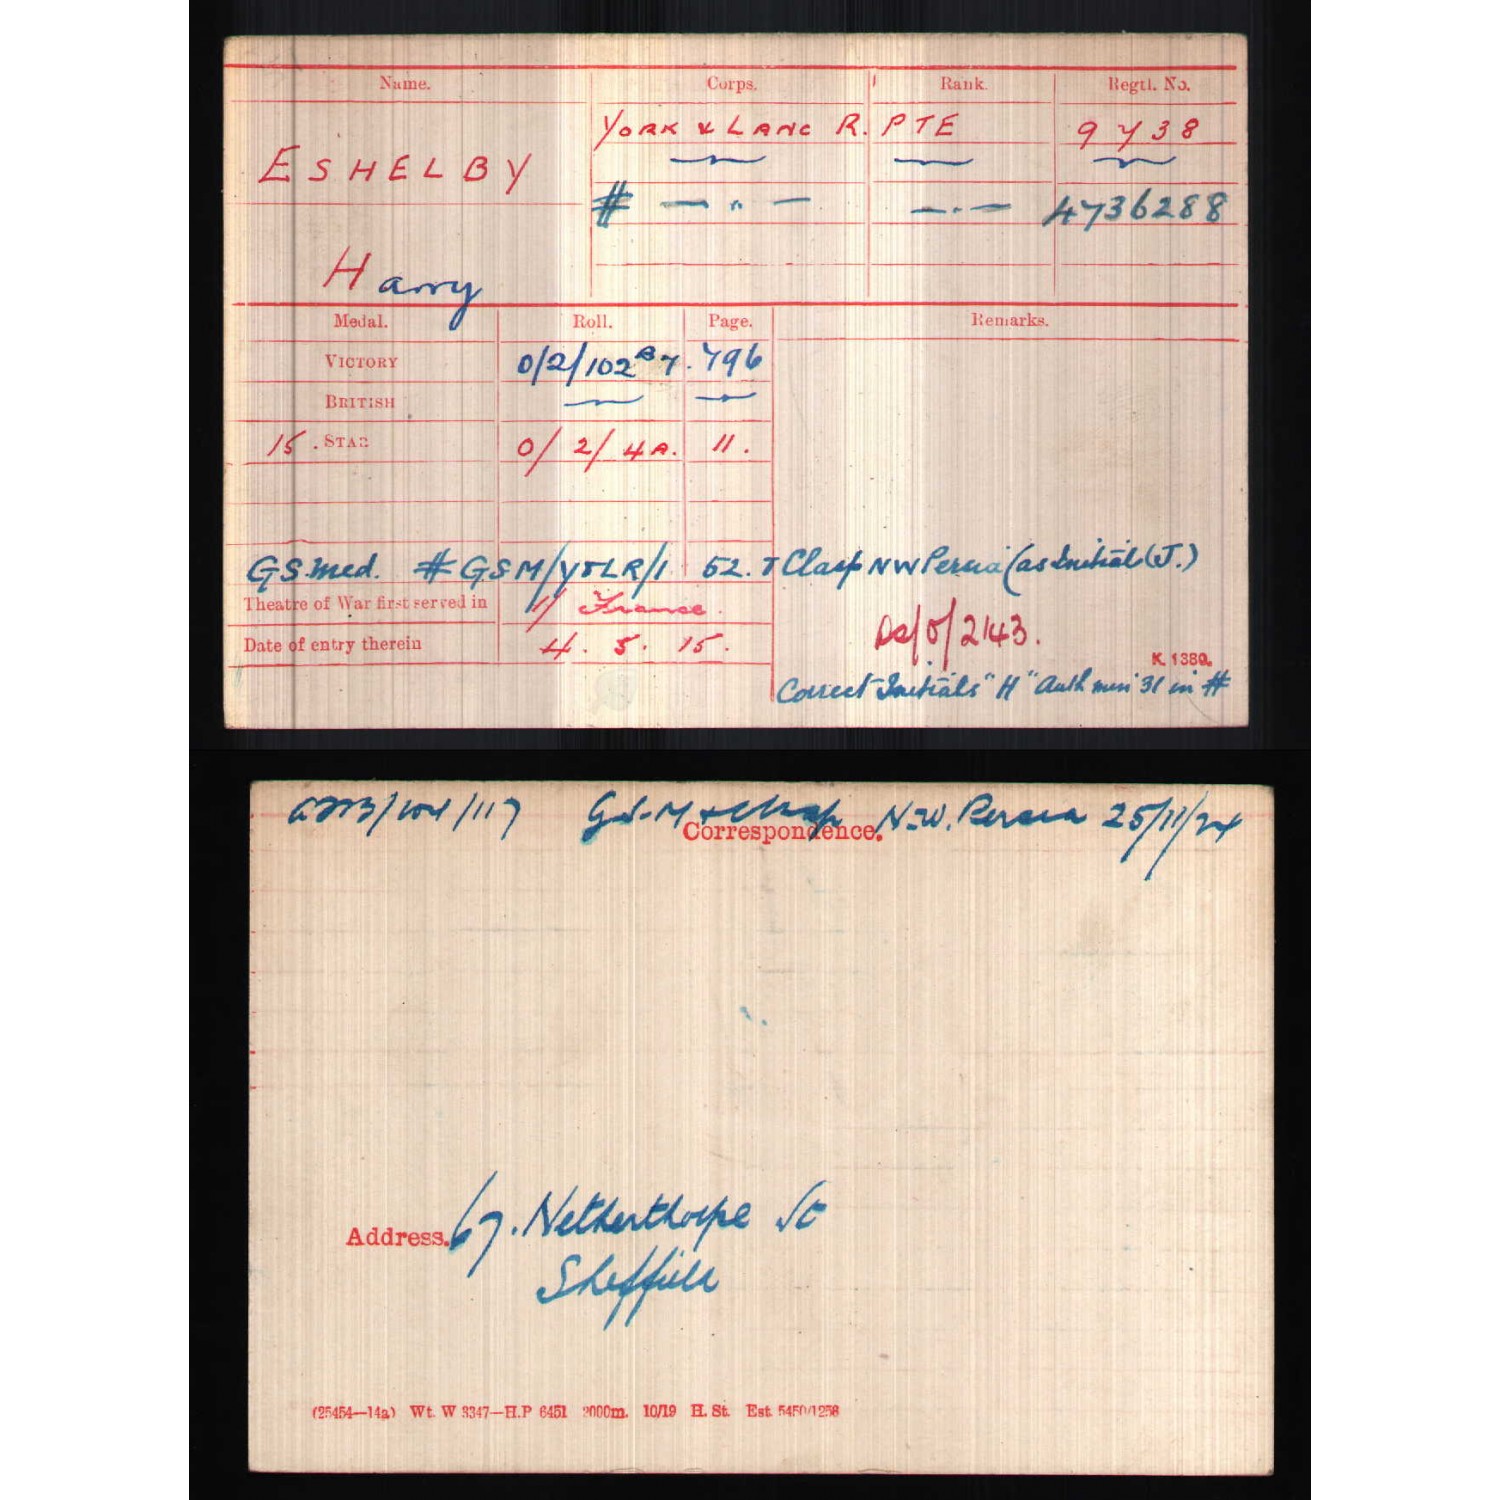 Name. Corps. Rank. Regtl. No.
YORK & LANC R. PTE 9738
ESHELBY
# — " — — . — 4736288
Harry
Medal. Roll. Page. Remarks.
VICTORY 0/2/102 B7. 796
BRITISH
15. STAR 0/2/4A. 11.
GS. Med. # GSM/Y&LR/1 52. T Clasp NW Persia (as Initial (J.)
Theatre of War first served in 1/ France.
DS/O/2143.
Date of entry therein 4. 5. 15.
K. 1380.
Correct Initials "H" Auth min 31 in #
/117 G.S.M + Clasp N.W. Persia 25/11/24
Correspondence.
Address. 67. Netherthorpe St
Sheffield
(25454—14a) Wt. W 3347—H.P 6451 2000m. 10/19 H. St. Est. 5450/1258